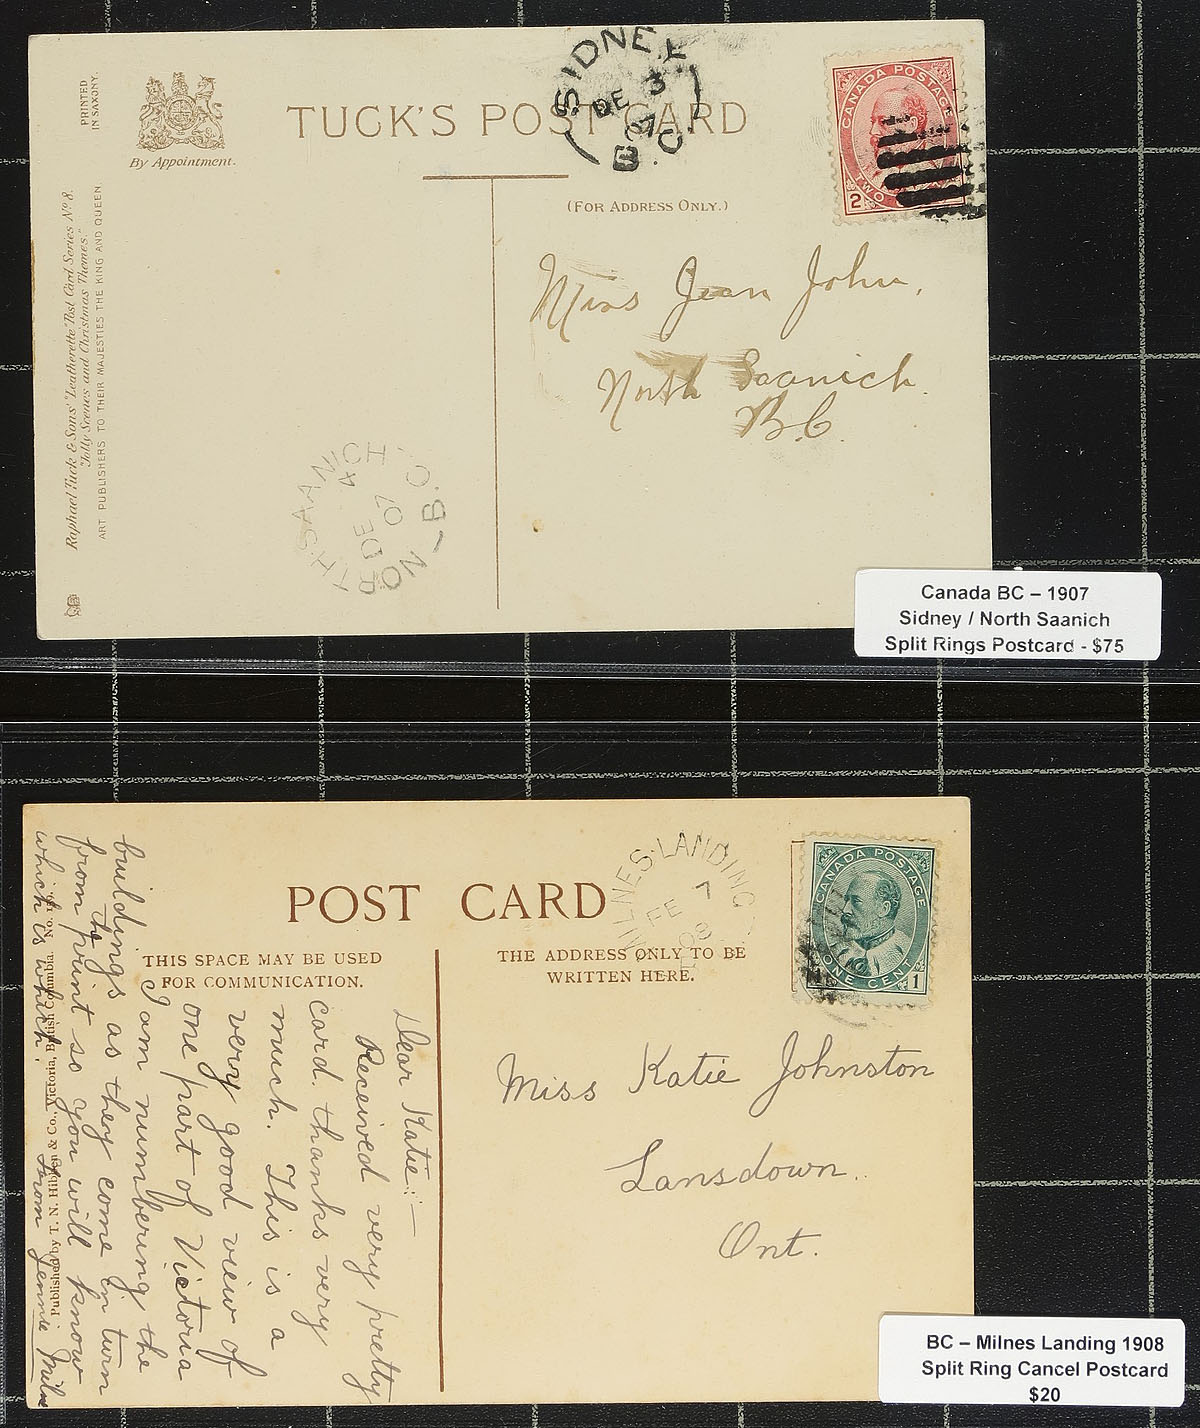 PRINTED
IN SAXONY.
By Appointment.
TUCK'S POST CARD
SIDNEY
DE 3
07
B.C.
CANADA POSTAGE
2
TWO
(FOR ADDRESS ONLY.)
Raphael Tuck & Sons' "Leatherette" Post Card Series No. 8.
"Jolly Scenes and Christmas Themes."
ART PUBLISHERS TO THEIR MAJESTIES THE KING AND QUEEN.
Miss Jean John,
North Saanich
B.C.
NORTH·SAANICH
DE 4
07
B.C.
Canada BC – 1907
Sidney / North Saanich
Split Rings Postcard - $75
POST CARD
MILNES·LANDING
FE 7
08
CANADA POSTAGE
ONE CENT
1
THIS SPACE MAY BE USED
FOR COMMUNICATION.
THE ADDRESS ONLY TO BE
WRITTEN HERE.
Dear Katie:—
Received very pretty
card. thanks very
much. This is a
very good view of
one part of Victoria
I am numbering the
buildings as they come in turn
from the print so you will know
which is which.
from Jennie Milne
Published by T. N. Hibben & Co., Victoria, British Columbia. No.
Miss Katie Johnston
Lansdown.
Ont.
BC – Milnes Landing 1908
Split Ring Cancel Postcard
$20